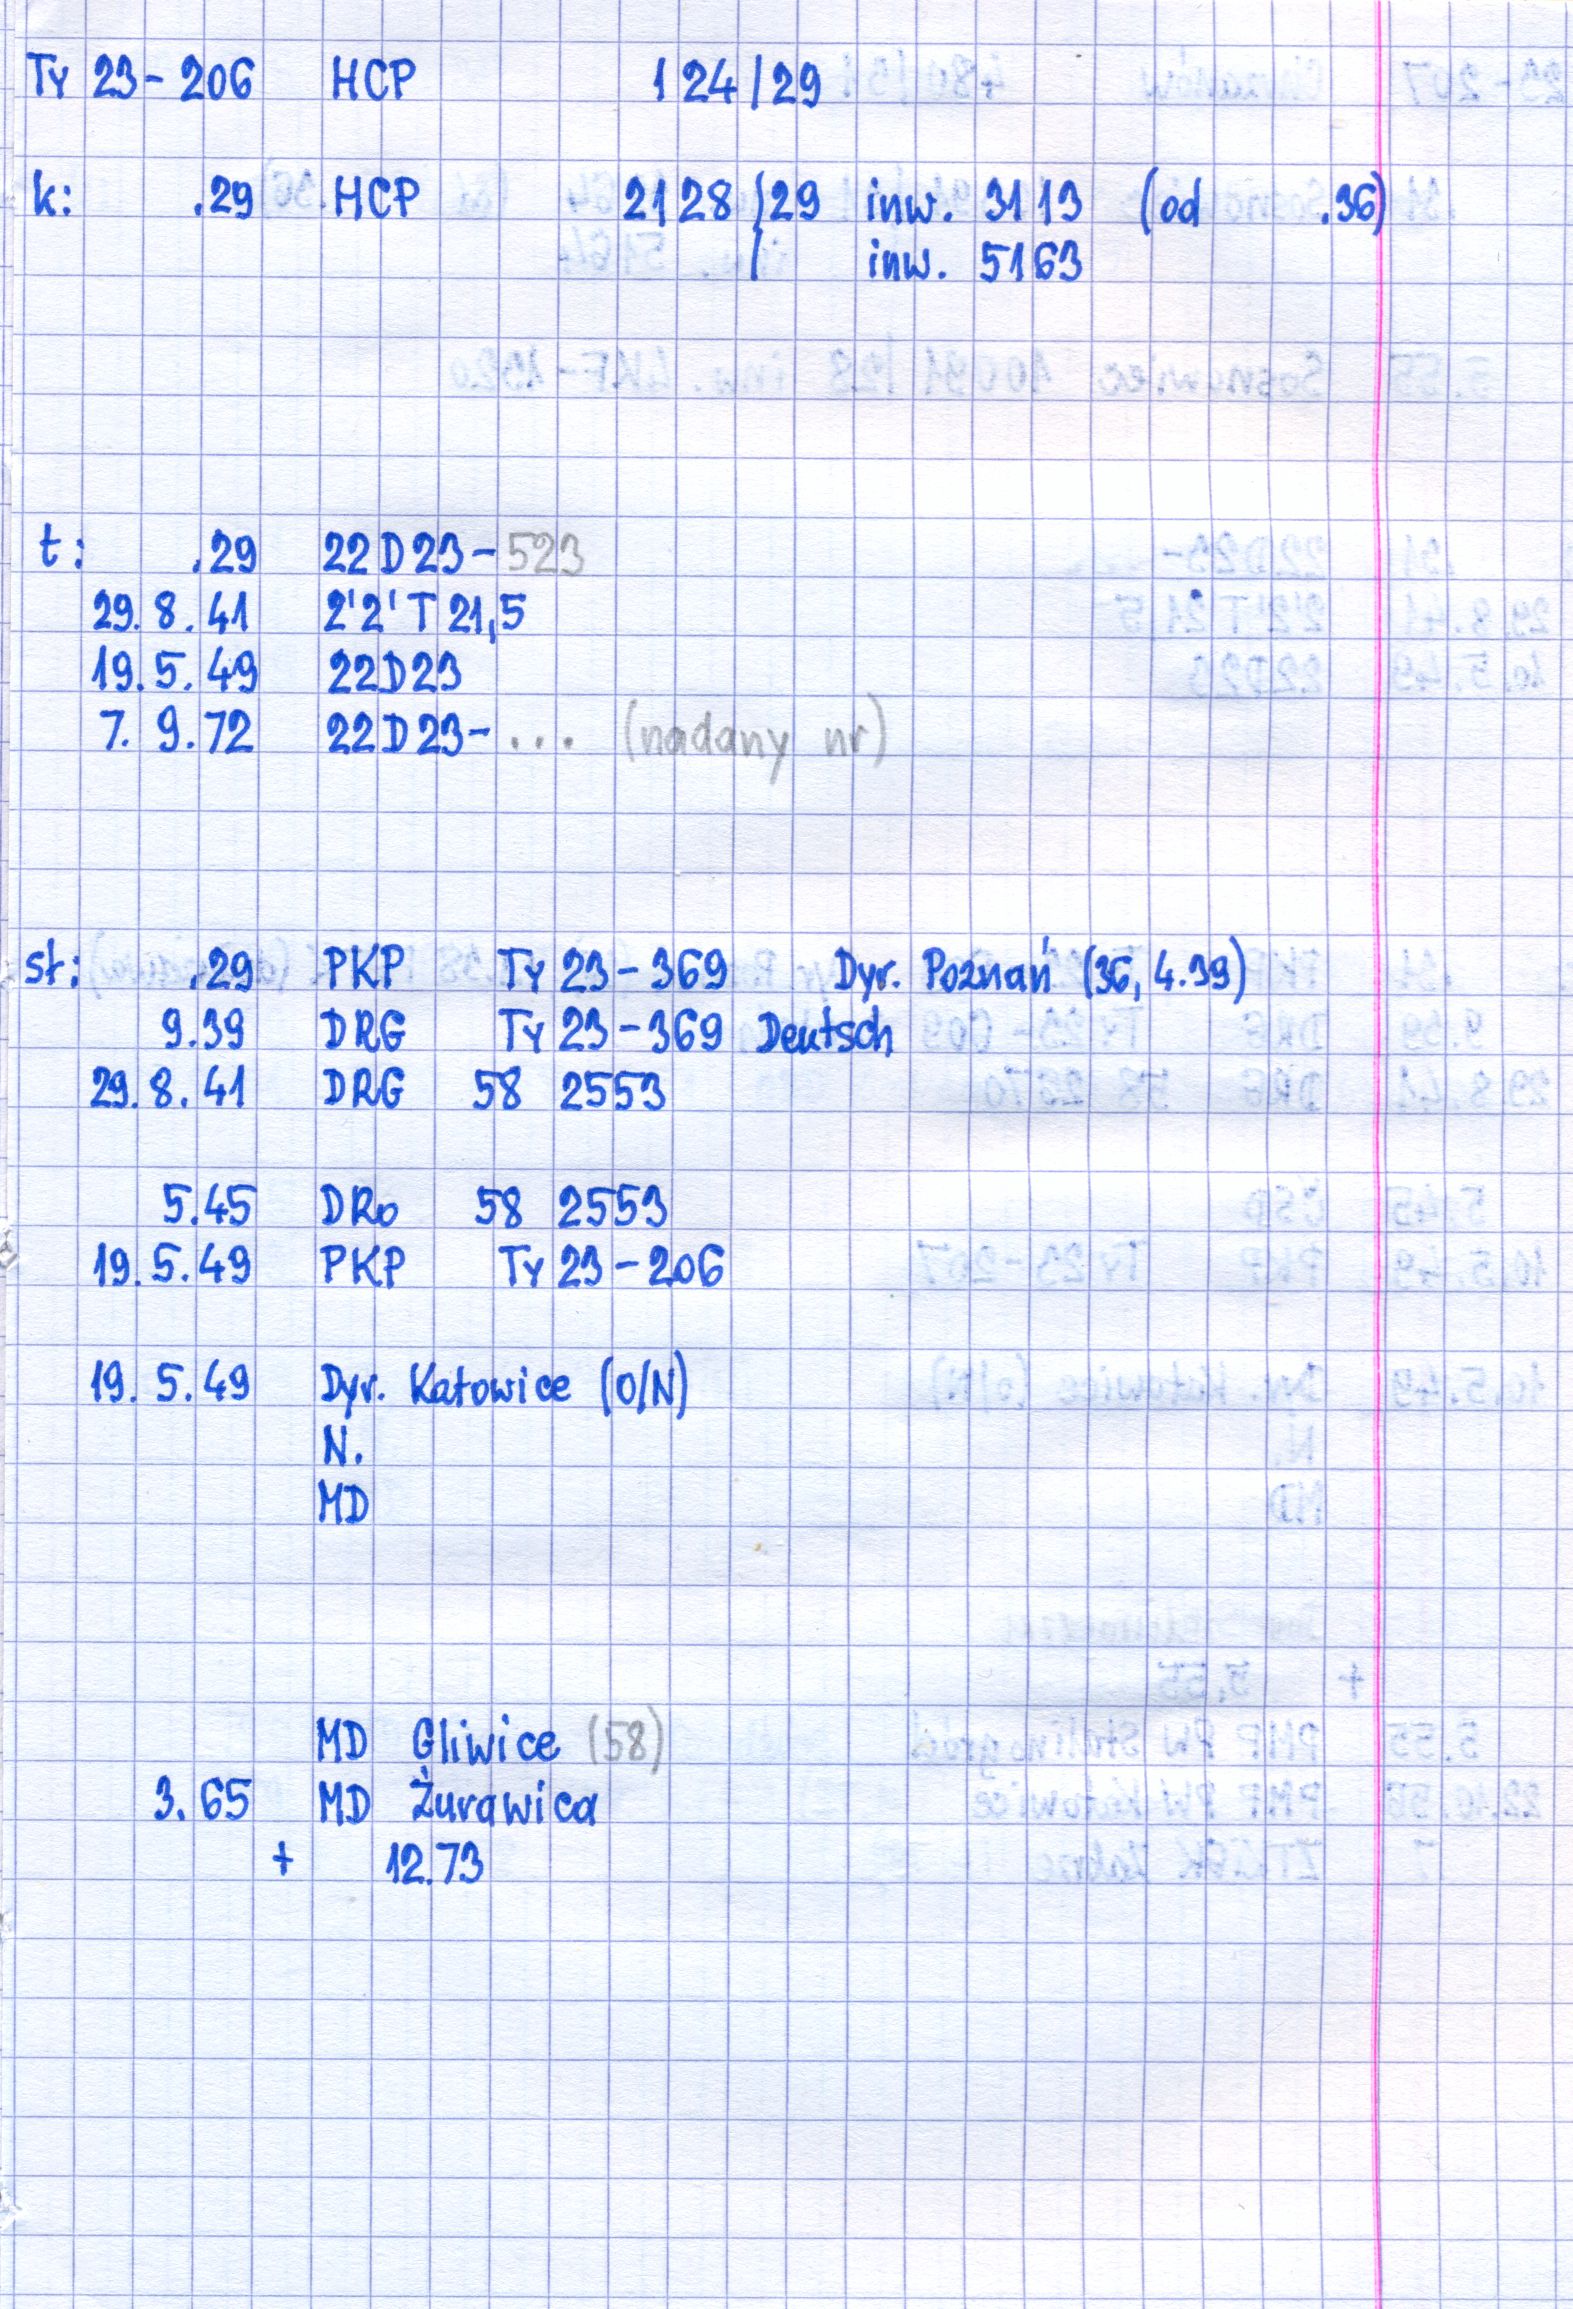 Ty 23-206 HCP 124/29
k: .29 HCP 2128/29 inw. 3113 (od .36)
/ inw. 5163
t: .29 22D23-523
29.8.41 2'2'T21,5
19.5.49 22D23
7.9.72 22D23-... (nadany nr)
st: .29 PKP Ty 23-369 Dyr. Poznań (36, 4.39)
9.39 DRG Ty 23-369 Deutsch
29.8.41 DRG 58 2553
5.45 DRo 58 2553
19.5.49 PKP Ty 23-206
19.5.49 Dyr. Katowice (O/N)
N.
MD
MD Gliwice (58)
3.65 MD Żurawica
+ 12.73